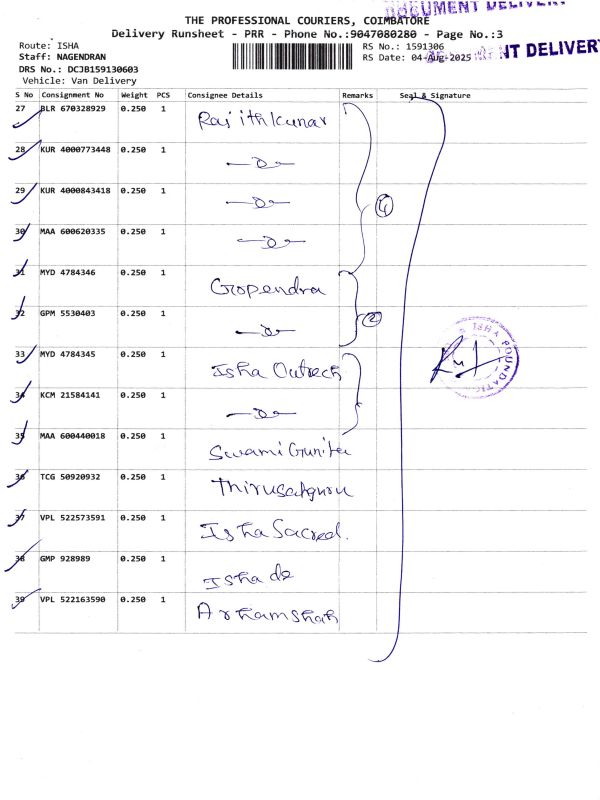 DOCUMENT DELIVERY
THE PROFESSIONAL COURIERS, COIMBATORE
Delivery Runsheet - PRR - Phone No.:9047080280 - Page No.:3
Route: ISHA
RS No.: 1591306
Staff: NAGENDRAN
RS Date: 04-Aug-2025
DOCUMENT DELIVERY
DRS No.: DCJB159130603
Vehicle: Van Delivery
S No Consignment No Weight PCS Consignee Details Remarks Seal & Signature
27 BLR 670328929 0.250 1 Rajithkumar
28 KUR 4000773448 0.250 1
29 KUR 4000843418 0.250 1
4
30 MAA 600620335 0.250 1
31 MYD 4784346 0.250 1 Gropendra
32 GPM 5530403 0.250 1 2
33 MYD 4784345 0.250 1 Isha Outrech
ISHA FOUNDATION
34 KCM 21584141 0.250 1
35 MAA 600440018 0.250 1 Swami Gunitha
36 TCG 50920932 0.250 1 Thirusatguru
37 VPL 522573591 0.250 1 Isha Sacred.
38 GMP 928989 0.250 1 Isha de
39 VPL 522163590 0.250 1 Arhamshah